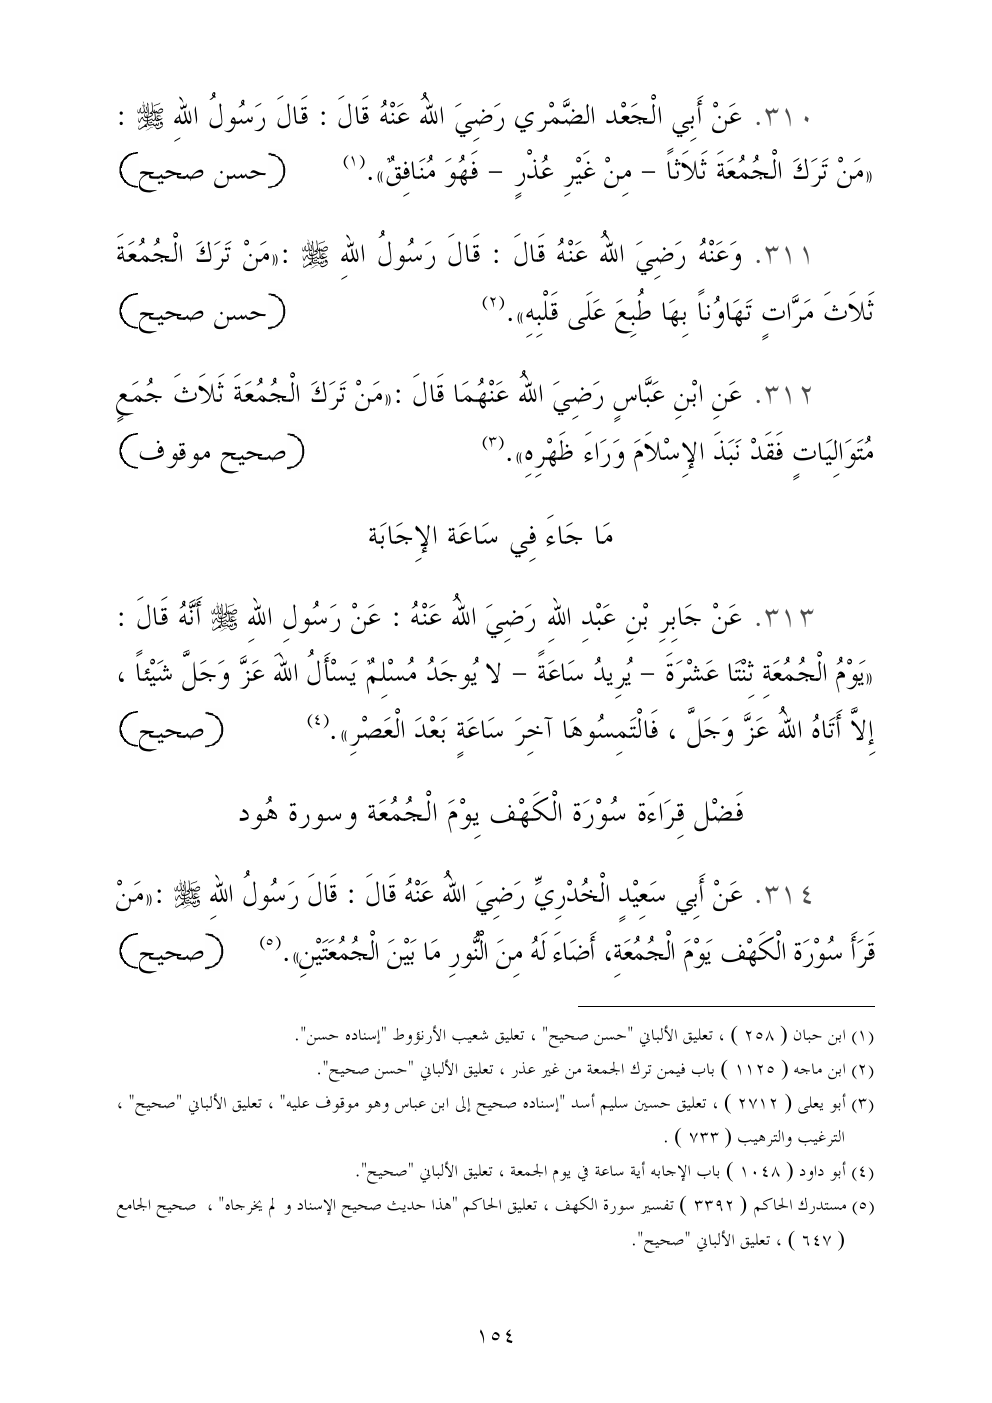 ٣١٠. عَنْ أَبِي الْجَعْد الضَّمْري رَضِيَ اللهُ عَنْهُ قَالَ : قَالَ رَسُولُ اللهِ ﷺ :
«مَنْ تَرَكَ الْجُمُعَةَ ثَلاَثاً – مِنْ غَيْرِ عُذْرٍ – فَهُوَ مُنَافِقٌ».(١) (حسن صحيح)
٣١١. وَعَنْهُ رَضِيَ اللهُ عَنْهُ قَالَ : قَالَ رَسُولُ اللهِ ﷺ :«مَنْ تَرَكَ الْجُمُعَةَ
ثَلاَثَ مَرَّاتٍ تَهَاوُناً بِهَا طُبِعَ عَلَى قَلْبِهِ».(٢) (حسن صحيح)
٣١٢. عَنِ ابْنِ عَبَّاسٍ رَضِيَ اللهُ عَنْهُمَا قَالَ :«مَنْ تَرَكَ الْجُمُعَةَ ثَلاَثَ جُمَعٍ
مُتَوَالِيَاتٍ فَقَدْ نَبَذَ الإِسْلاَمَ وَرَاءَ ظَهْرِهِ».(٣) (صحيح موقوف)
مَا جَاءَ فِي سَاعَة الإِجَابَة
٣١٣. عَنْ جَابِرِ بْنِ عَبْدِ اللهِ رَضِيَ اللهُ عَنْهُ : عَنْ رَسُولِ اللهِ ﷺ أَنَّهُ قَالَ :
«يَوْمُ الْجُمُعَةِ ثِنْتَا عَشْرَةَ – يُرِيدُ سَاعَةً – لا يُوجَدُ مُسْلِمٌ يَسْأَلُ اللهَ عَزَّ وَجَلَّ شَيْئاً ،
إِلاَّ أَتَاهُ اللهُ عَزَّ وَجَلَّ ، فَالْتَمِسُوهَا آخِرَ سَاعَةٍ بَعْدَ الْعَصْرِ».(٤) (صحيح)
فَضْل قِرَاءَة سُوْرَة الْكَهْف يِوْمَ الْجُمُعَة وسورة هُود
٣١٤. عَنْ أَبِي سَعِيْدٍ الْخُدْرِيِّ رَضِيَ اللهُ عَنْهُ قَالَ : قَالَ رَسُولُ اللهِ ﷺ :«مَنْ
قَرَأَ سُوْرَة الْكَهْف يَوْمَ الْجُمُعَةِ، أَضَاءَ لَهُ مِنَ الْنُّورِ مَا بَيْنَ الْجُمُعَتَيْنِ».(٥) (صحيح)
(١) ابن حبان ( ٢٥٨ ) ، تعليق الألباني "حسن صحيح" ، تعليق شعيب الأرنؤوط "إسناده حسن".
(٢) ابن ماجه ( ١١٢٥ ) باب فيمن ترك الجمعة من غير عذر ، تعليق الألباني "حسن صحيح".
(٣) أبو يعلى ( ٢٧١٢ ) ، تعليق حسين سليم أسد "إسناده صحيح إلى ابن عباس وهو موقوف عليه" ، تعليق الألباني "صحيح" ،
الترغيب والترهيب ( ٧٣٣ ) .
(٤) أبو داود ( ١٠٤٨ ) باب الإجابه أية ساعة في يوم الجمعة ، تعليق الألباني "صحيح".
(٥) مستدرك الحاكم ( ٣٣٩٢ ) تفسير سورة الكهف ، تعليق الحاكم "هذا حديث صحيح الإسناد و لم يخرجاه" ، صحيح الجامع
( ٦٤٧ ) ، تعليق الألباني "صحيح".
١٥٤